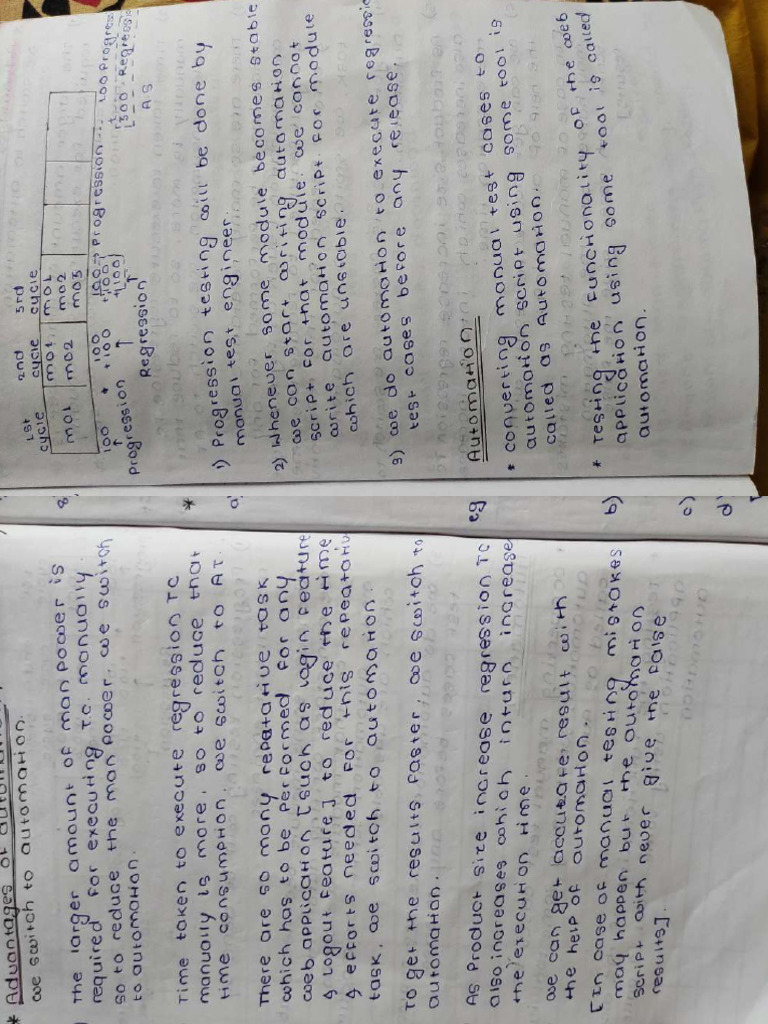 1st cycle 2nd cycle 3rd cycle
mo1 mo1 mo1
mo2 mo2
mo3
100 + +100 100 → Progression .... 200 Progress
+100
+100
300 - - Regressio
Progression Regression
AS
1) Progression testing will be done by
manual test engineer.
2) Whenever some module becomes stable
we can start writing automation
script for that module we cannot
write automation script for module
which are unstable.
3) we do automation to execute regressio
test cases before any release.
Automation:
* converting manual test cases to
automation script using some tool is
called as Automation.
* Testing the functionality of the web
application using some tool is called
automation.
* Advantages of automation
we switch to automation.
The larger amount of man power is
required for executing TC manually.
so to reduce the man power, we switch
to automation.
Time taken to execute regression TC
manually is more, so to reduce that
time consumption, we switch to AT.
There are so many repatative task
which has to be performed for any
web application [such as login feature
& logout feature] to reduce the time
& efforts needed for this repeatativ
task, we switch to automation.
To get the results faster, we switch to
automation.
As Product size increase regression TC
also increases which inturn increase
the execution time.
we can get accurate result with
the help of automation.
[In case of manual testing mistakes
may happen but the automation
script with never give the false
results].
8,
*
a)
eg
b)
c)
d)